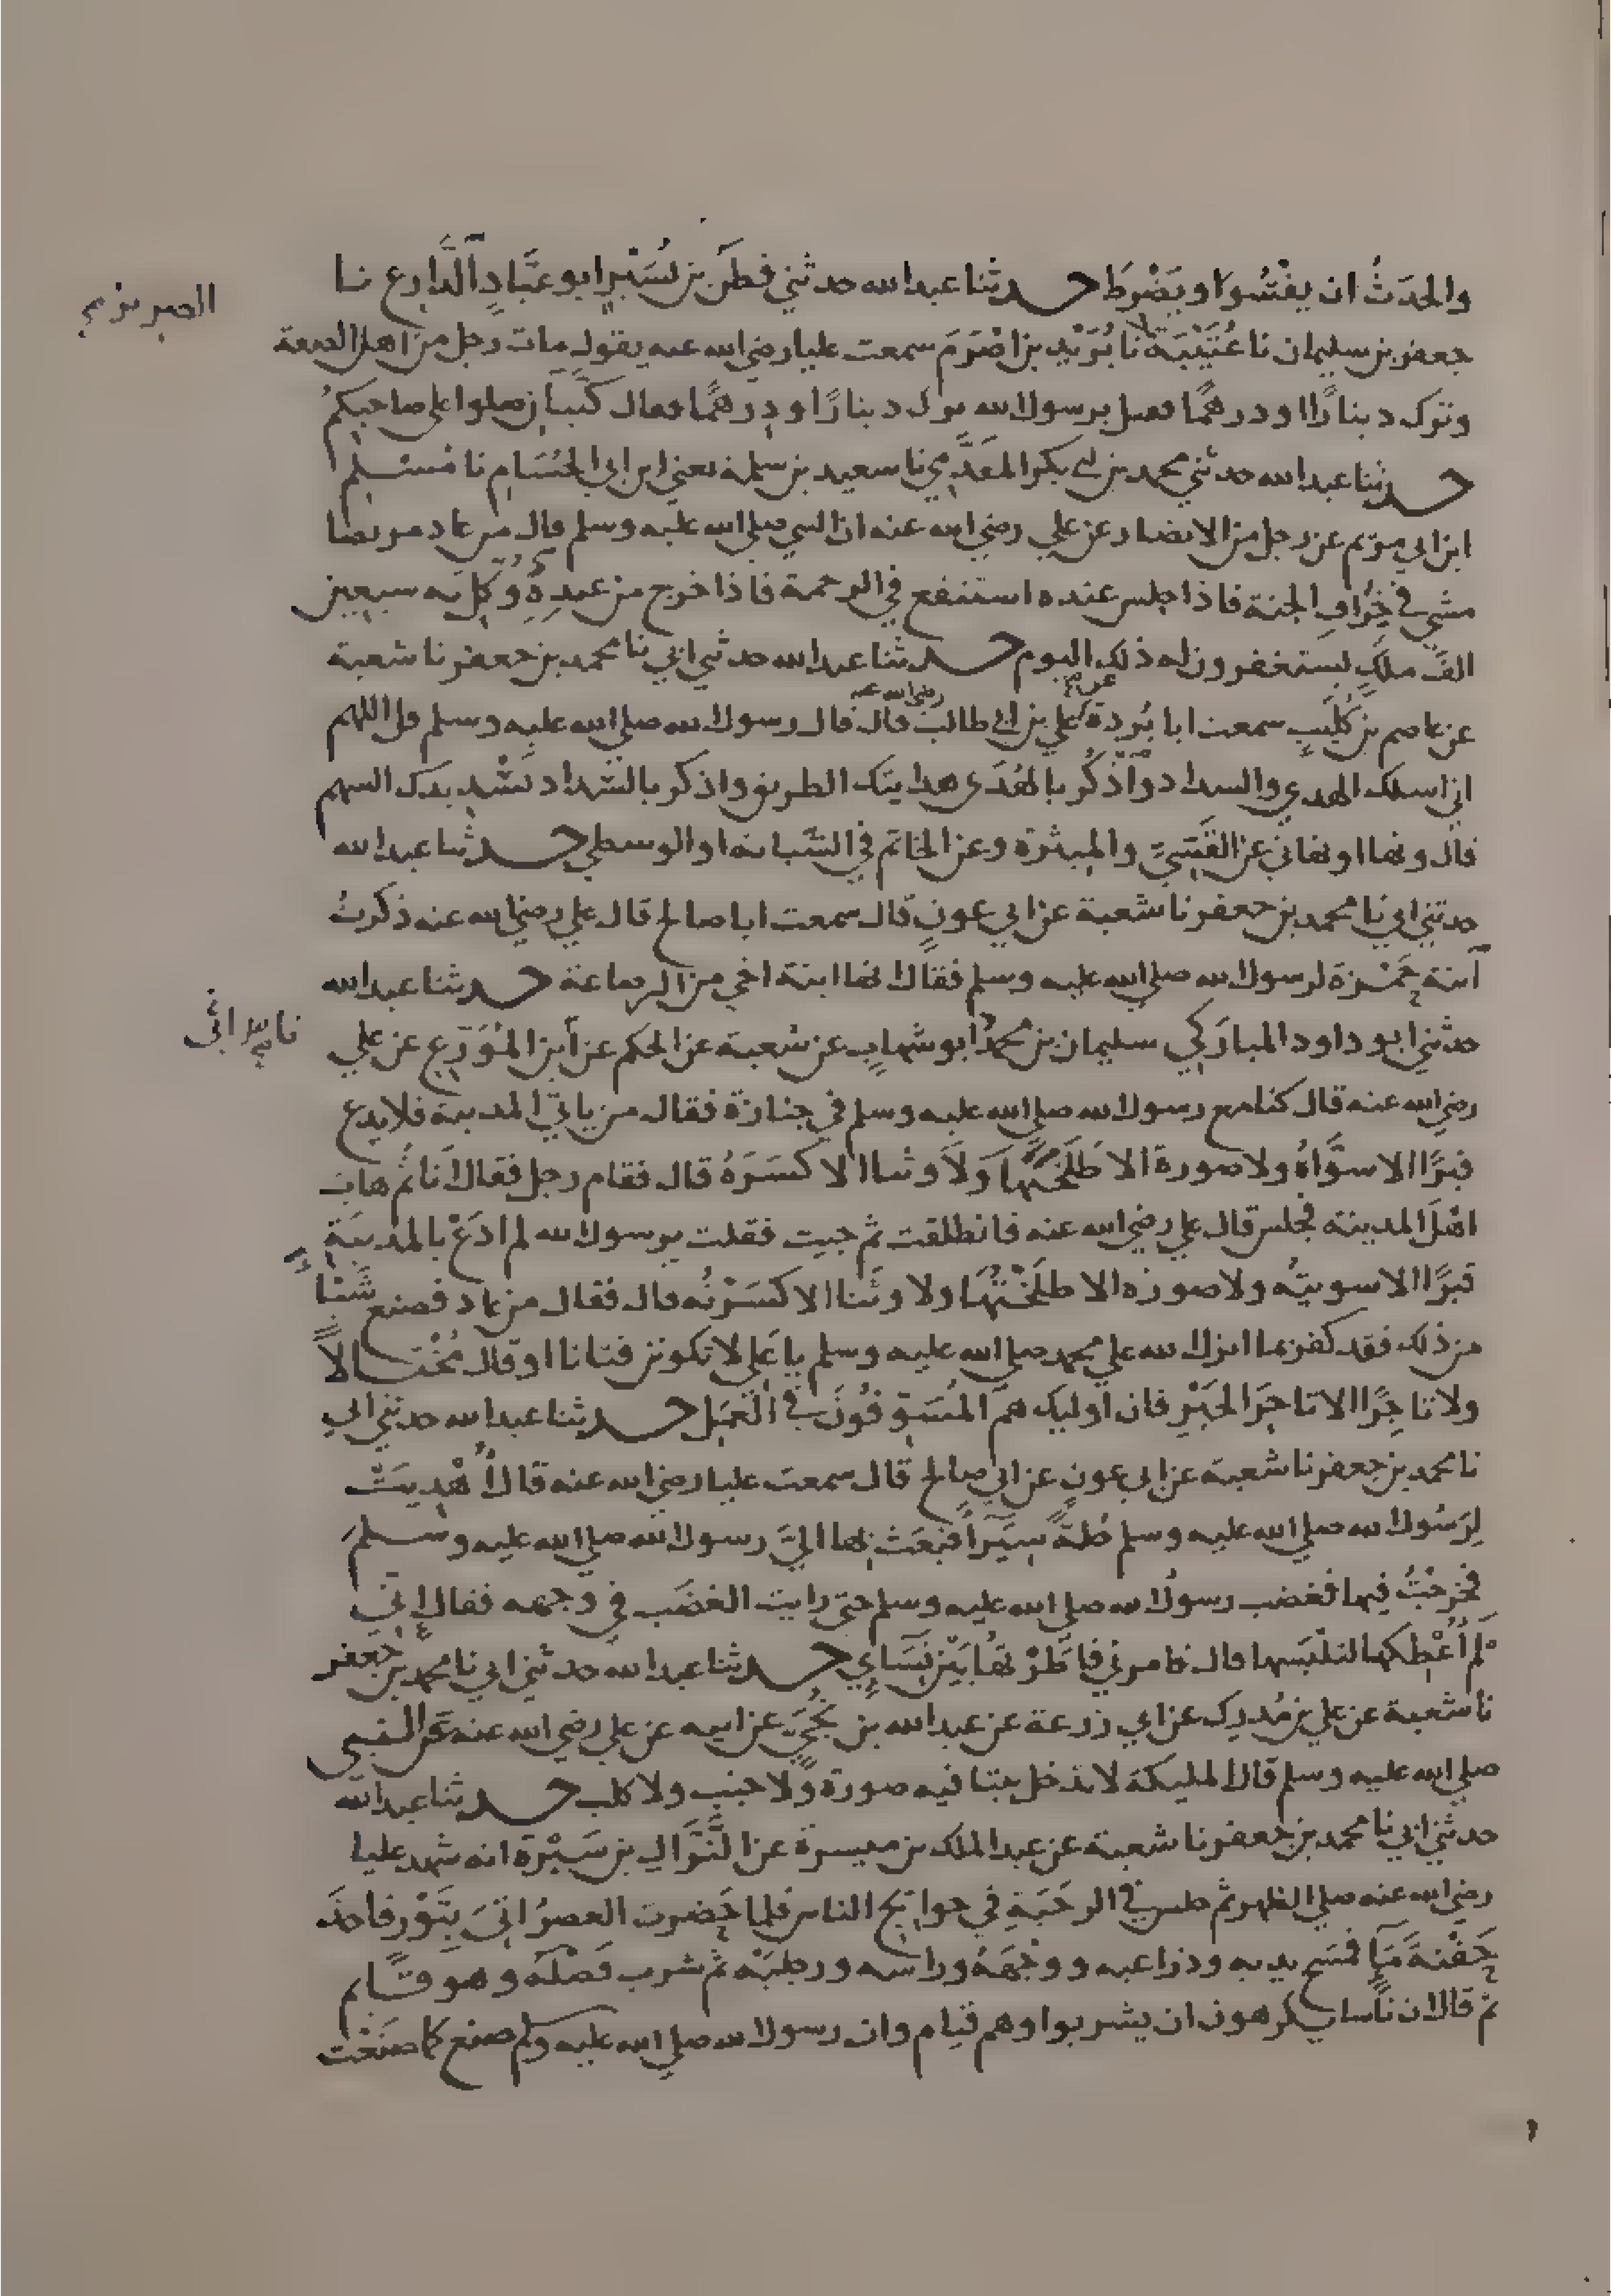 والحدَثُ ان يفْسُوَ او يَضْرِطَ حدثنا عبد الله حدثني قطَن بن نُسَيْرٍ ابو عَبَّادٍ الذَّارِع نا
جعفر بن سليمان نا عُتَيْبَة نا بُرَيْد بن اصْرَمَ سمعت عليا رضي الله عنه يقول مات رجل من اهل الصفة
وترك دينارًا او درهمًا فقيل يرسول الله ترك دينارًا ودرهمًا فقال كَيَّتَان صلوا على صاحبكمُ
حدثنا عبد الله حدثني محمد بن ابي بكر المقَدَّمِي نا سعيد بن سلمة يعني ابن ابي الحُسَامِ نا مُسْلم
ابن ابي مريم عن رجل من الانصار عن علي رضي الله عنه ان النبي صلى الله عليه وسلم قال من عاد مريضا
مشى في خِرَافِ الجنة فاذا جلس عنده استنقع في الرحمة فاذا خرج من عندِهِ وُكِّل به سبعين
الفَ ملَكٍ يستغفرون له ذلك اليوم حدثنا عبد الله حدثني ابي نا محمد بن جعفر نا شعبة
عن عاصم بن كُلَيْبٍ سمعت ابا بُردة عن علي بن ابي طالب رضي الله عنه قال قال رسول الله صلى الله عليه وسلم قل اللهم
اني اسلك الهدي والسداد وَاذْكُر بالهُدَى هدايتك الطريق واذكر بالسَّداد تَسْديدك السهم
قال ونها او نهاني عن القَسِّيِّ والمِيثرة وعن الخاتم في السَّبابة او الوسطي حدثنا عبد الله
حدثني ابي نا محمد بن جعفر نا شعبة عن ابي عونٍ قال سمعت ابا صالح قال علي رضي الله عنه ذكرتُ
ابنة حَمْزة لرسول الله صلى الله عليه وسلم فقال انها ابنة اخي من الرضاعة حدثنا عبد الله
حدثني ابو داود المباركي سليمان بن محمد ابو شهابٍ عن شعبة عن الحكم عن ابن المُوَرِّعِ عن علي
رضي الله عنه قال كنا مع رسول الله صلى الله عليه وسلم في جنازة فقال من ياتي المدينة فلا يدع
قبرًا الا سوَّاهُ ولا صورة الا طَلَخَها وَلَا وثنا الا كسَرَهُ قال فقام رجل فقال انا ثُم هابَ
اهْلَ المدينة فجلس قال علي رضي الله عنه فانطلقت ثم جيت فقلت يرسول الله لم ادَعْ بالمدينَةِ
قبرًا الا سويتُه ولا صورة الا طلَخْتُها ولا وثَنا الا كسَرْتُه قال فقال من عاد فصنع شَيْئًا
من ذلك فقد كفر بما انزل الله على محمد صلى الله عليه وسلم يا عَلي لا تكونن فتانا او قال مُخْتالًا
ولا تاجِرًا الا تاجرَ الخَيْرِ فان اوليك هم المُسَوِّفُونَ في العَمَل حدثنا عبد الله حدثني ابي
نا محمد بن جعفر نا شعبة عن ابي عونٍ عن ابي صالح قال سمعت عليا رضي الله عنه قال اُهْدِيَتْ
لِرَسُول الله صلى الله عليه وسلم حُلةٌ سِيَرَاُ فبَعَثَ بها اليَّ رسول الله صلى الله عليه وسلم
فخرجْتُ فيها فغضب رسولُ الله صلى الله عليه وسلم حتى رايت الغضَب في وجهه فقال اِني
لم اُعْطِكها لتلْبَسها قال فامرني فاَطَرْتُها بَيْن نِسَاي حدثنا عبد الله حدثني ابي نا محمد بن جعفر
نا شعبة عن علي بن مُدْرِك عن ابي زرعة عن عبد الله بن نُجَيٍّ عن ابيه عن علي رضي الله عنه عن النبي
صلى الله عليه وسلم قال المليكة لا تدخل بيتا فيه صورة وَلا جنب ولا كلب حدثنا عبد الله
حدثني ابي نا محمد بن جعفر نا شعبة عن عبد الملك بن ميسرة عن النَّزَّال بن سَبْرَة انه شهد عليا
رضي الله عنه صلى الظهر ثم جلس في الرحَبَةِ في حوايج الناس فلما حَضرت العصرُ اتىَ بِتَوْرٍ فاخذَ
حَفْنةَ مَآءٍ فمسَح يديه وذراعيه ووجْهَهُ وراسه ورجليْه ثم شرب فَضْلَه وهو قَايم
ثم قال ان نَاسا يكرهون ان يشربوا وهم قيام وان رسول الله صلى الله عليه وسلم صنع كما صنَعْت